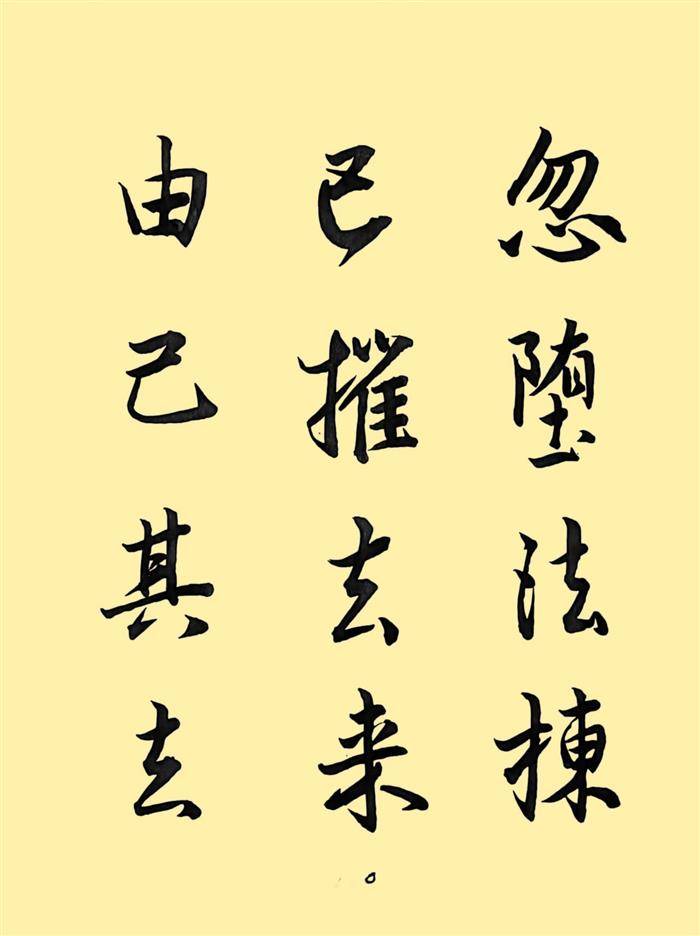 忽堕法棟
已摧去来
由己其去